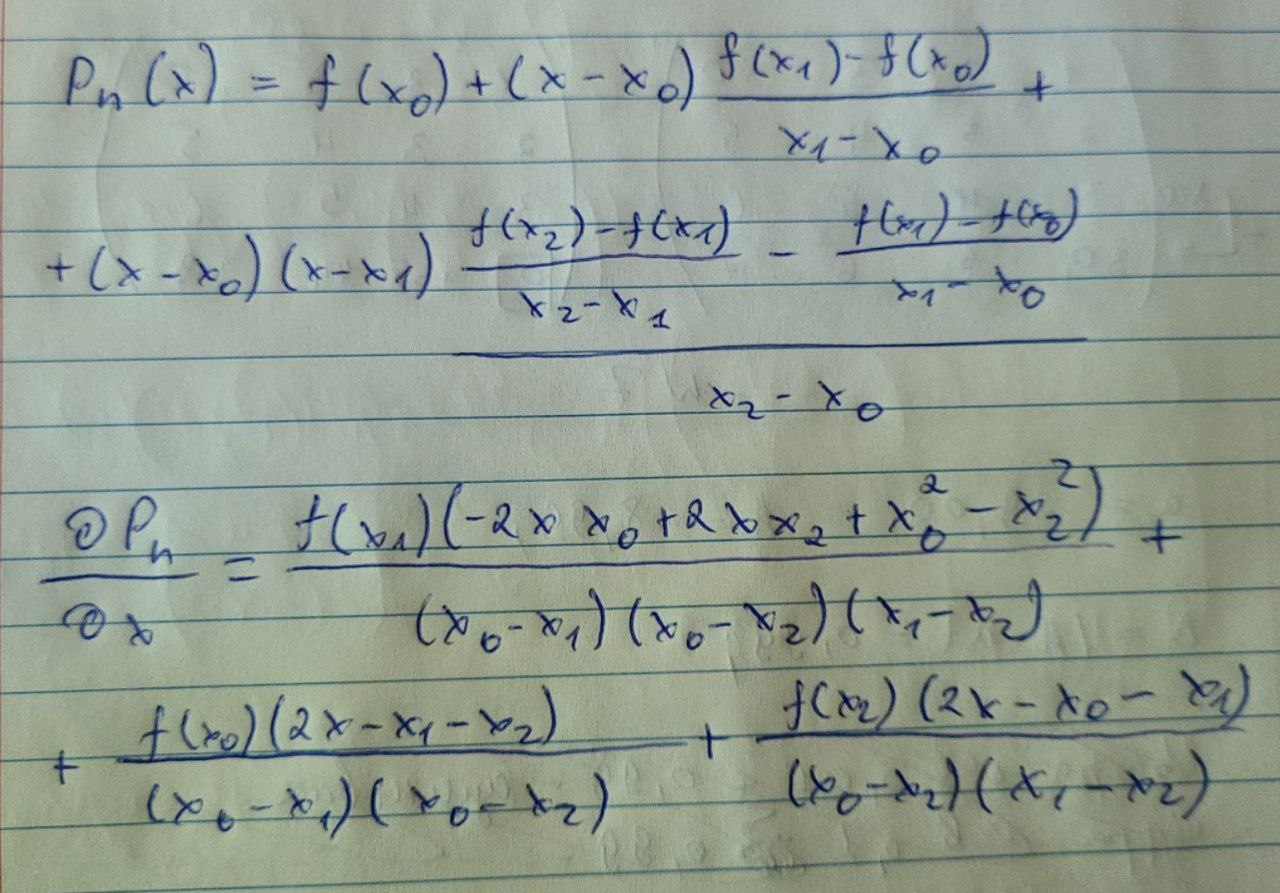 Pn(x) = f(x₀) + (x - x₀) (f(x₁) - f(x₀))/(x₁ - x₀) +
+ (x - x₀)(x - x₁) ((f(x₂) - f(x₁))/(x₂ - x₁) - (f(x₁) - f(x₀))/(x₁ - x₀))/(x₂ - x₀)
∂Pn/∂x = f(x₁)(-2x x₀ + 2x x₂ + x₀² - x₂²)/((x₀ - x₁)(x₀ - x₂)(x₁ - x₂)) +
+ f(x₀)(2x - x₁ - x₂)/((x₀ - x₁)(x₀ - x₂)) + f(x₂)(2x - x₀ - x₁)/((x₀ - x₂)(x₁ - x₂))